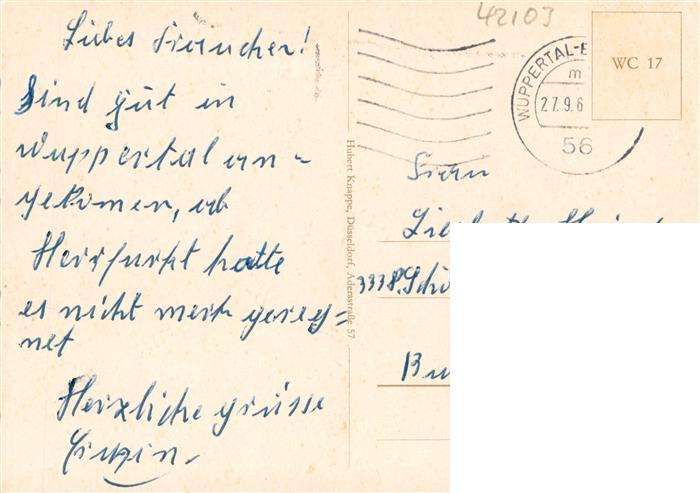 Liebes Frauchen!
Sind gut in
Wuppertal an=
gekomen, ab
Herrfurkt hatte
es nicht mehr gereg=
net
Herzliche grüsse
Hubert Knappe, Düsseldorf, Adersstraße 57
42103
WUPPERTAL-E
m
27.9.6
56
WC 17
Frau
3338 Schö
Bu